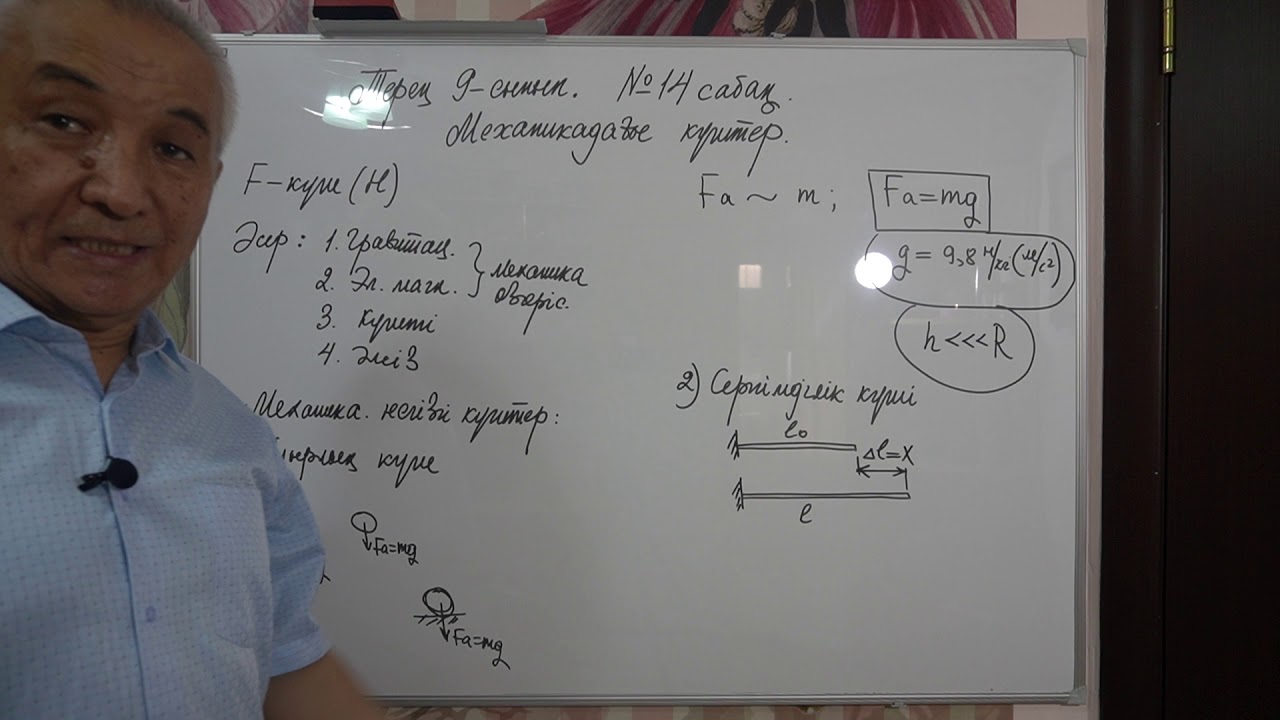 Терең 9-сынып. №14 сабақ.
Механикадағы күштер.
F-күш (Н)
Әсер: 1. Гравитац.
2. Эл. магн.
3. Күшті
4. Әлсіз
Механика
өзеріс.
Механика. негізгі күштер:
күші
Fa=mg
Fa=mg
Fa ~ m; Fa=mg
g = 9,8 Н/кг (м/с²)
h<<<R
2) Серпімділік күші
l₀
Δl=x
l